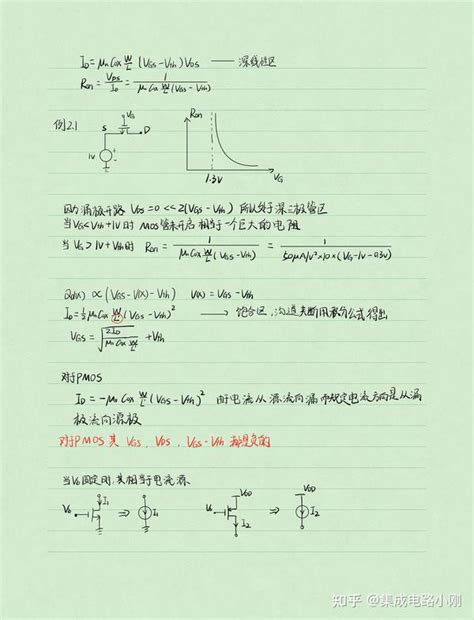 I_D = μ_n Cox W/L (V_GS - V_th) V_DS —— 深线性区
R_on = V_DS/I_D = 1/(μ_n Cox W/L (V_GS - V_th))
例2.1
V_G
S
D
1V
R_on
1.3V
V_G
因为漏极开路 V_DS = 0 << 2(V_GS - V_th) 所以处于深三极管区
当V_G < V_th + 1V 时 MOS管未开启 相当于一个巨大的电阻
当 V_G > 1V + V_th 时 R_on = 1/(μ_n Cox W/L (V_GS - V_th)) = 1/(50μA/V² × 10 × (V_G - 1V - 0.3V))
Q_d(x) ∝ (V_GS - V(x) - V_th) V(x) = V_GS - V_th
I_D = ½ μ_n Cox W/L (V_GS - V_th)² —— 饱和区，沟道夹断用积分公式得出
V_GS = √(2I_D/(μ_n Cox W/L)) + V_th
对于PMOS
I_D = -μ_n Cox W/L (V_GS - V_th)² 由于电流从源流向漏而规定电流方向是从漏
极流向源极
对于PMOS 其 V_GS、V_DS、V_GS - V_th 都是负的
当V_G固定时，其相当于电流源
V_G I_1 ⇒ I_1 V_G VDD I_2 ⇒ VDD I_2
知乎 @集成电路小刚